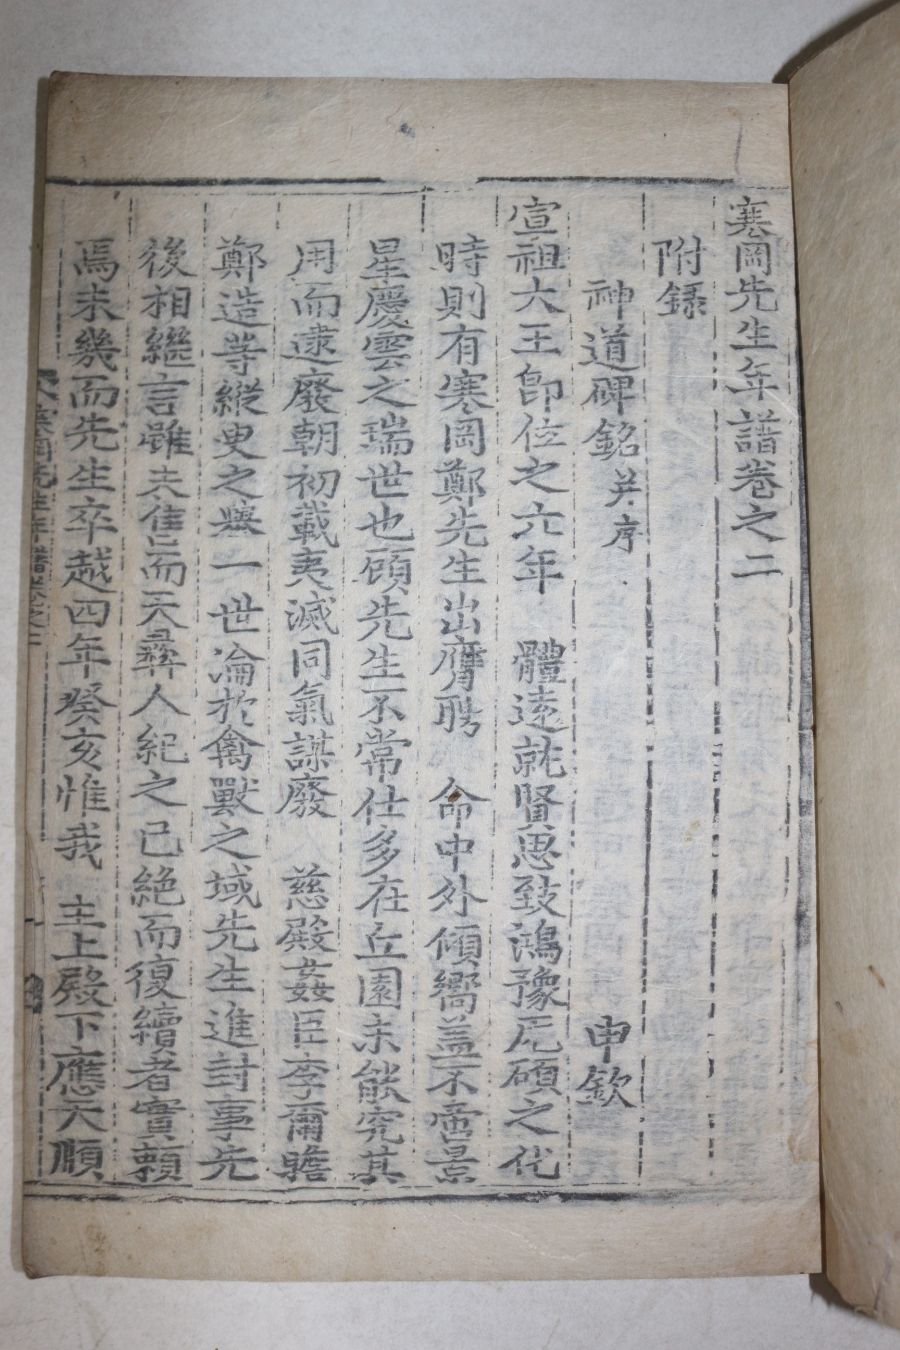 寒岡先生年譜卷之二
附錄
神道碑銘 并序 申欽
宣祖大王卽位之六年 體遠就賢思致鴻豫厖碩之代
時則有寒岡鄭先生出膺聘 命中外傾嚮盖不啻景
星慶雲之瑞世也顧先生不常仕多在丘園未能究其
用而逮廢朝初載夷滅同氣謀廢 慈殿姦臣李爾瞻
鄭造等縱臾之擧一世淪於禽獸之域先生進封事先
後相繼言雖未售而天彛人紀之已絶而復續者實賴
焉未幾而先生卒越四年癸亥惟我 主上殿下應天順
寒岡先生年譜卷之二